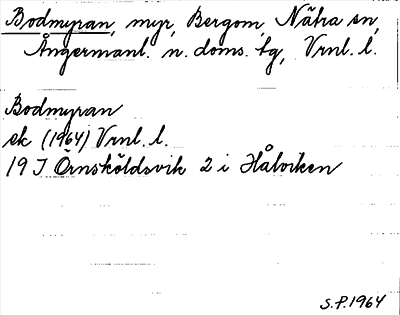 Bodmyran, myr, Bergom, Nätra sn,
Ångermanl. n. doms. tg, Vrnl. l.
Bodmyran
ek (1964) Vrnl. l.
19 J Örnsköldsvik 2 i Hålviken
S.P. 1964